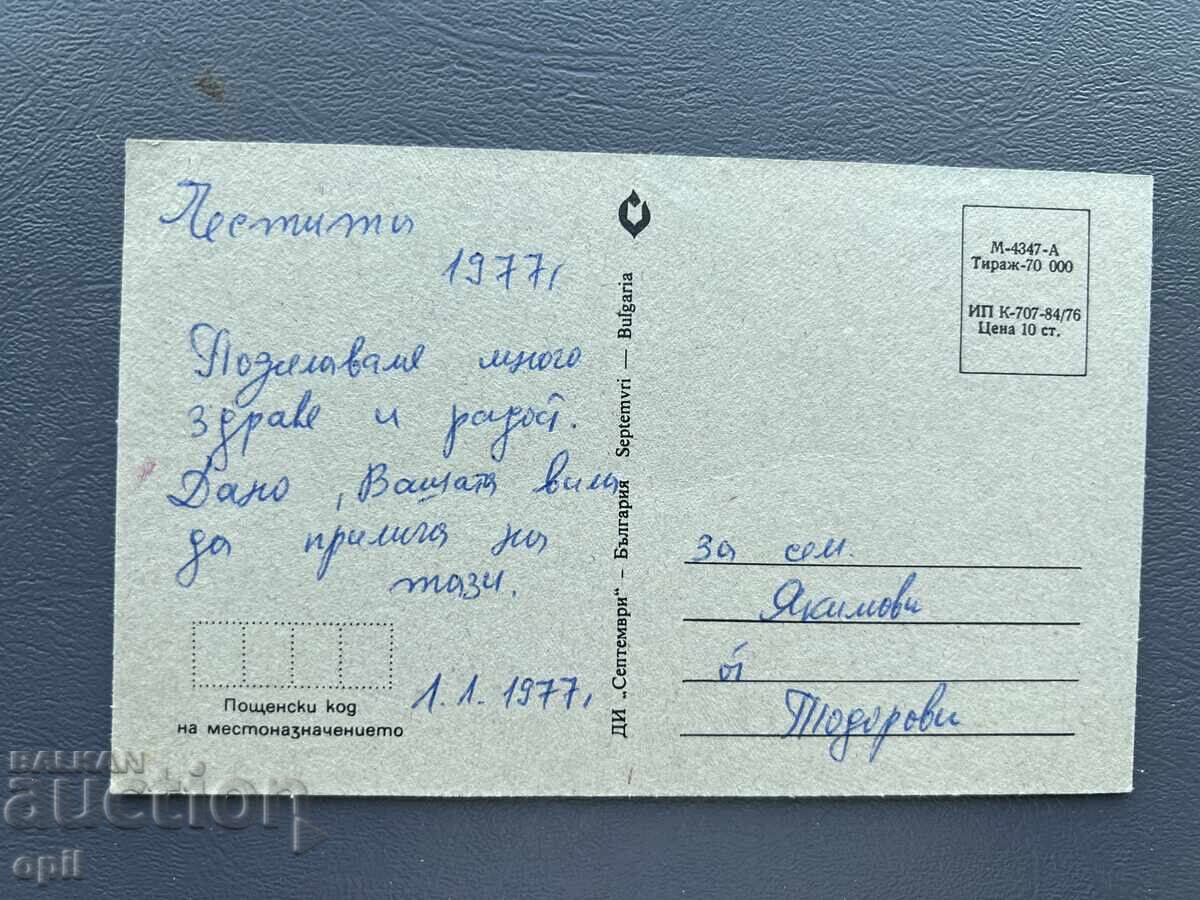 Честита
1977г
Пожелаваме много
здраве и радост.
Дано, Вашата вила
да прилича на
тази.
Пощенски код
на местоназначението
1.1.1977г
ДИ „Септември“ – България Septemvri — Bulgaria
М-4347-А
Тираж-70 000
ИП К-707-84/76
Цена 10 ст.
за сем.
Якимови
от
Тодорови
BALKAN
auction
opil